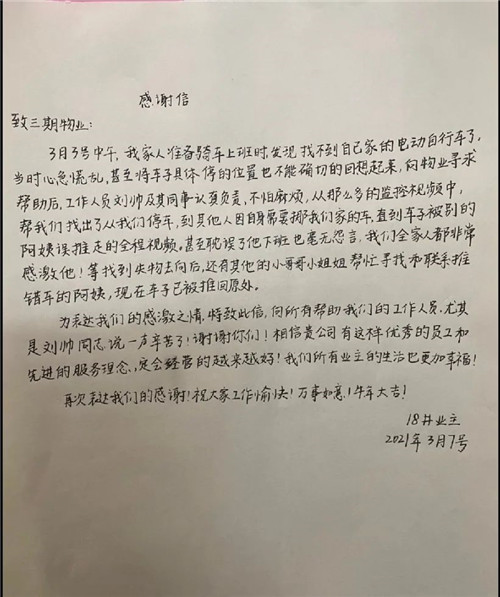 感谢信
致三期物业：
3月3号中午，我家人准备骑车上班时，发现找不到自己家的电动自行车了，
当时心急慌乱，甚至将车子具体停的位置也不能确切的回想起来，向物业寻求
帮助后，工作人员刘帅及其同事认真负责，不怕麻烦，从那么多的监控视频中，
帮我们找出了从我们停车，到其他人因自身需要挪我们家的车，直到车子被别的
阿姨误推走的全程视频。甚至耽误了他下班也毫无怨言，我们全家人都非常
感激他！等找到失物去向后，还有其他的小哥哥小姐姐帮忙寻找和联系推
错车的阿姨，现在车子已被推回原处。
为表达我们的感激之情，特致此信，向所有帮助我们的工作人员，尤其
是刘帅同志，说一声辛苦了！谢谢你们！相信贵公司有这样优秀的员工和
先进的服务理念，定会经营的越来越好！我们所有业主的生活也更加幸福！
再次表达我们的感谢！祝大家工作愉快！万事如意！牛年大吉！
18#业主
2021年3月7号